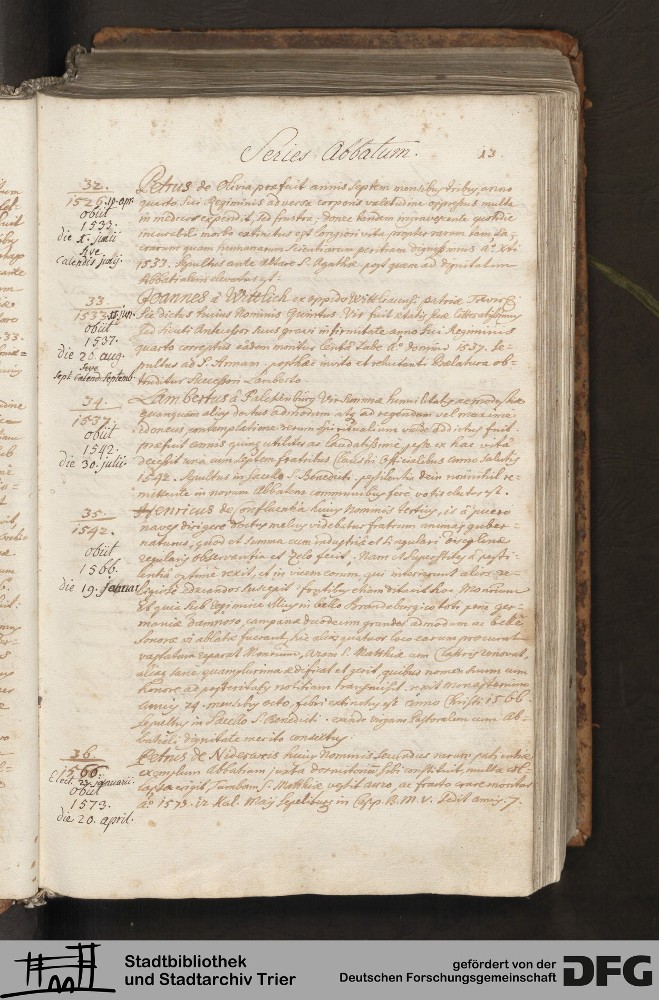 Series Abbatum. 13
32.
1526. 19. apr.
obiit
1533.
die 1. julii
sive
Calendis julij.
Petrus de Olivia praefuit annis septem mensibus tribus, anno
quarto sui Regiminis adversa corporis valetudine oppressus multa
in medicos expendit, sed frustra; donec tandem ingravescente quotidie
morbo extinctus est
quam humanarum scientiarum peritiam
1533. sepultus ante altare S. Agathae post quem ad dignitatem
Abbatialem elevatus est.
33.
1533.
obiit
1537.
die 20. aug.
seve
sept. calend. septemb.
Joannes à Wittlich ex oppido Wittliacensi patriae Trevir:
sic dictus huius Nominis Quintus. Vir fuit
sed sicuti Antecessor suus gravi infirmitate anno sui Regiminis
quarto correptus eadem moritur A.º Domini 1537. Se-
pultus ad S. Annam, posthac invito et reluctanti Baculara ob-
truditur successori Lamberto.
34.
1537.
obiit
1542.
die 30. julii.
Lambertus à Falchenburg Vir
quamquam alias doctus admodum atq ad regendum vel maxime
idoneus, contemplatione rerum spiritualium valde addictus fuit.
praefuit annis quinq utilitas ac laudatissime, peste ex hac vita
decessit una cum septem fratribus Anno salutis
1542. sepultus in sacello S. Benedicti, pestilentia dein nonnihil re-
mittente in novum Abbatem communibus fere votis electus est.
35.
1542.
obiit
1566.
die 19. januar
Henricus de Confluentia huius Nominis tertius, is à puero
naves dirigere doctus melius videbatur fratrum animas guber-
naturus, quod et summa cum industria et singulari disciplinae
regularis observantia et zelo fecit: Nam et superstites à pesti-
lentia optime rexit, et in vicem eorum, qui interierunt alios re-
ligiose educandos suscepit. Monrium
Et quia sub tempus in bello Brandeburgico toti pene ger-
maniae damnoso campanae duodecim grandes admodum ac bellè
sonorae ablatae fuerant, hic alias quatuor loco earum procuravit
vastatum reparat Monrium, Aram S. Matthiae cum Claustris renovat,
alias sane quamplurima aedificat et gerit, quibus nomen suum cum
honore ad posteritatis notitiam transmisit. rexit monasterium
annis 24. mensibus octo, febri extinctus est anno Christi 1566.
sepultus in sacello S. Benedicti. eundo virgam Pastoralem cum Ab-
batiali dignitate merito consultus.
36.
1566.
Elect. 23. januarii.
obiit
1573.
die 20. april.
Petrus de Niderweis huius Nominis secundus rarum patientiae
exemplum Abbatiam juxta dormitorium sibi construit, multa col-
lapsa erigit, Tumbam S. Matthiae vestit auro, ac fracto crure moritur
aº 1573. 12 Kal. Maij sepelitur in Capp. B. M. V. sedit annis 7.
Stadtbibliothek
und Stadtarchiv Trier
gefördert von der
Deutschen Forschungsgemeinschaft
DFG